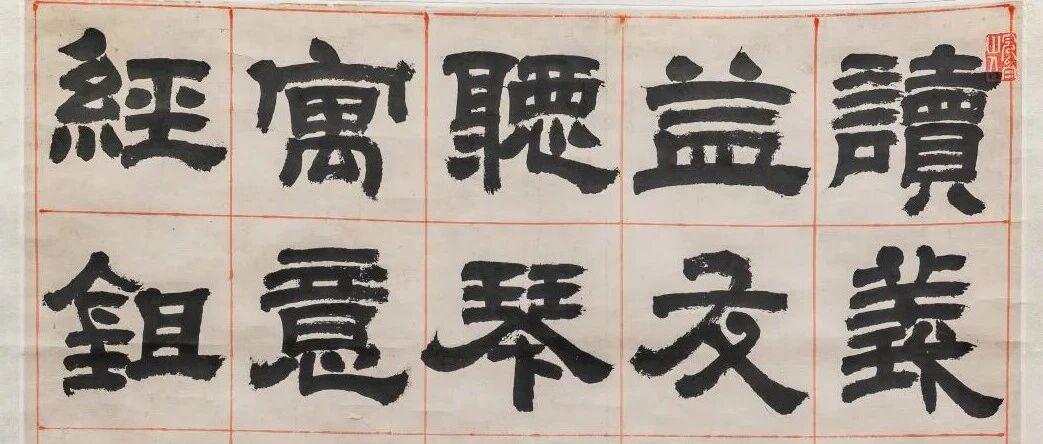 讀義
益友
聽琴
寓意
經鉏